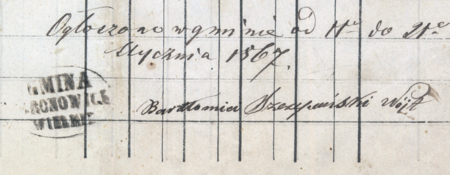 Ogłoszono w gminie od 11º do 21º
Stycznia 1867.
GMINA
BRONOWICE
WIELKIE
Bartłomiej Szczepański Wójt